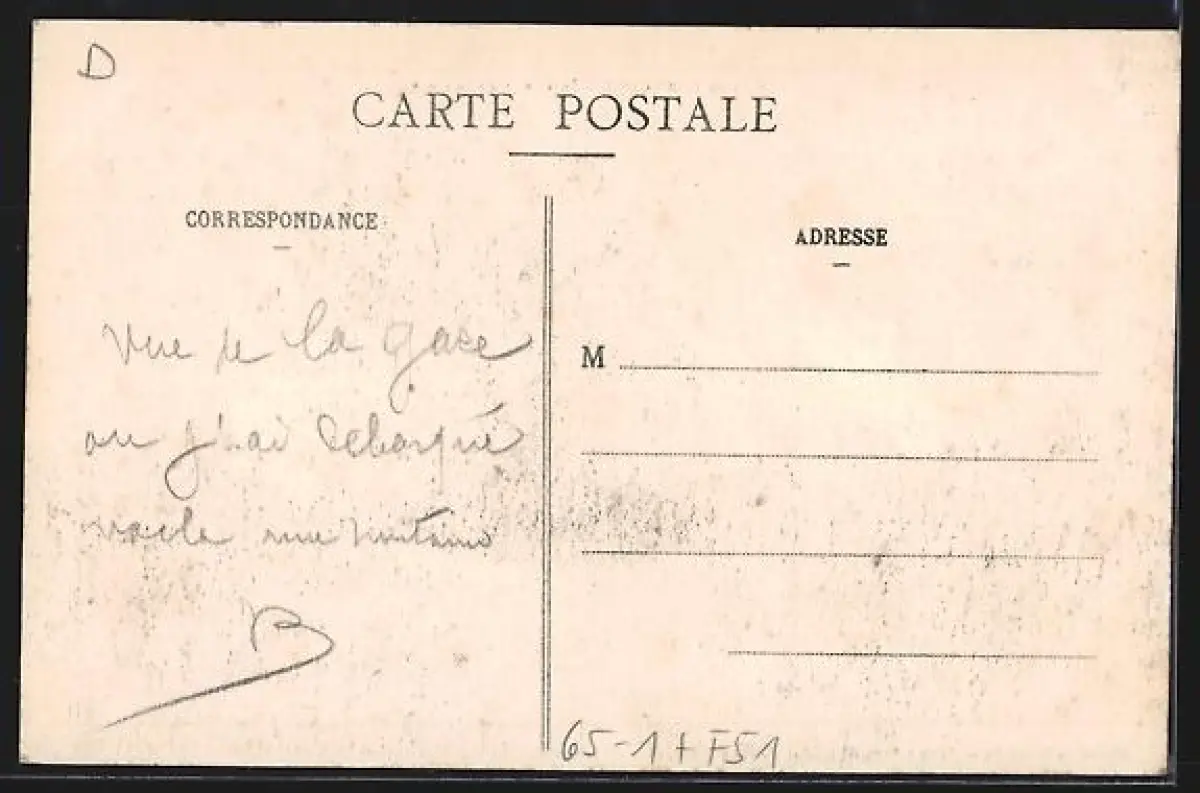 D
CARTE POSTALE
CORRESPONDANCE
ADRESSE
Vue de la gare
M
ou j'ai debarqué
voila une
B
65-1+F51